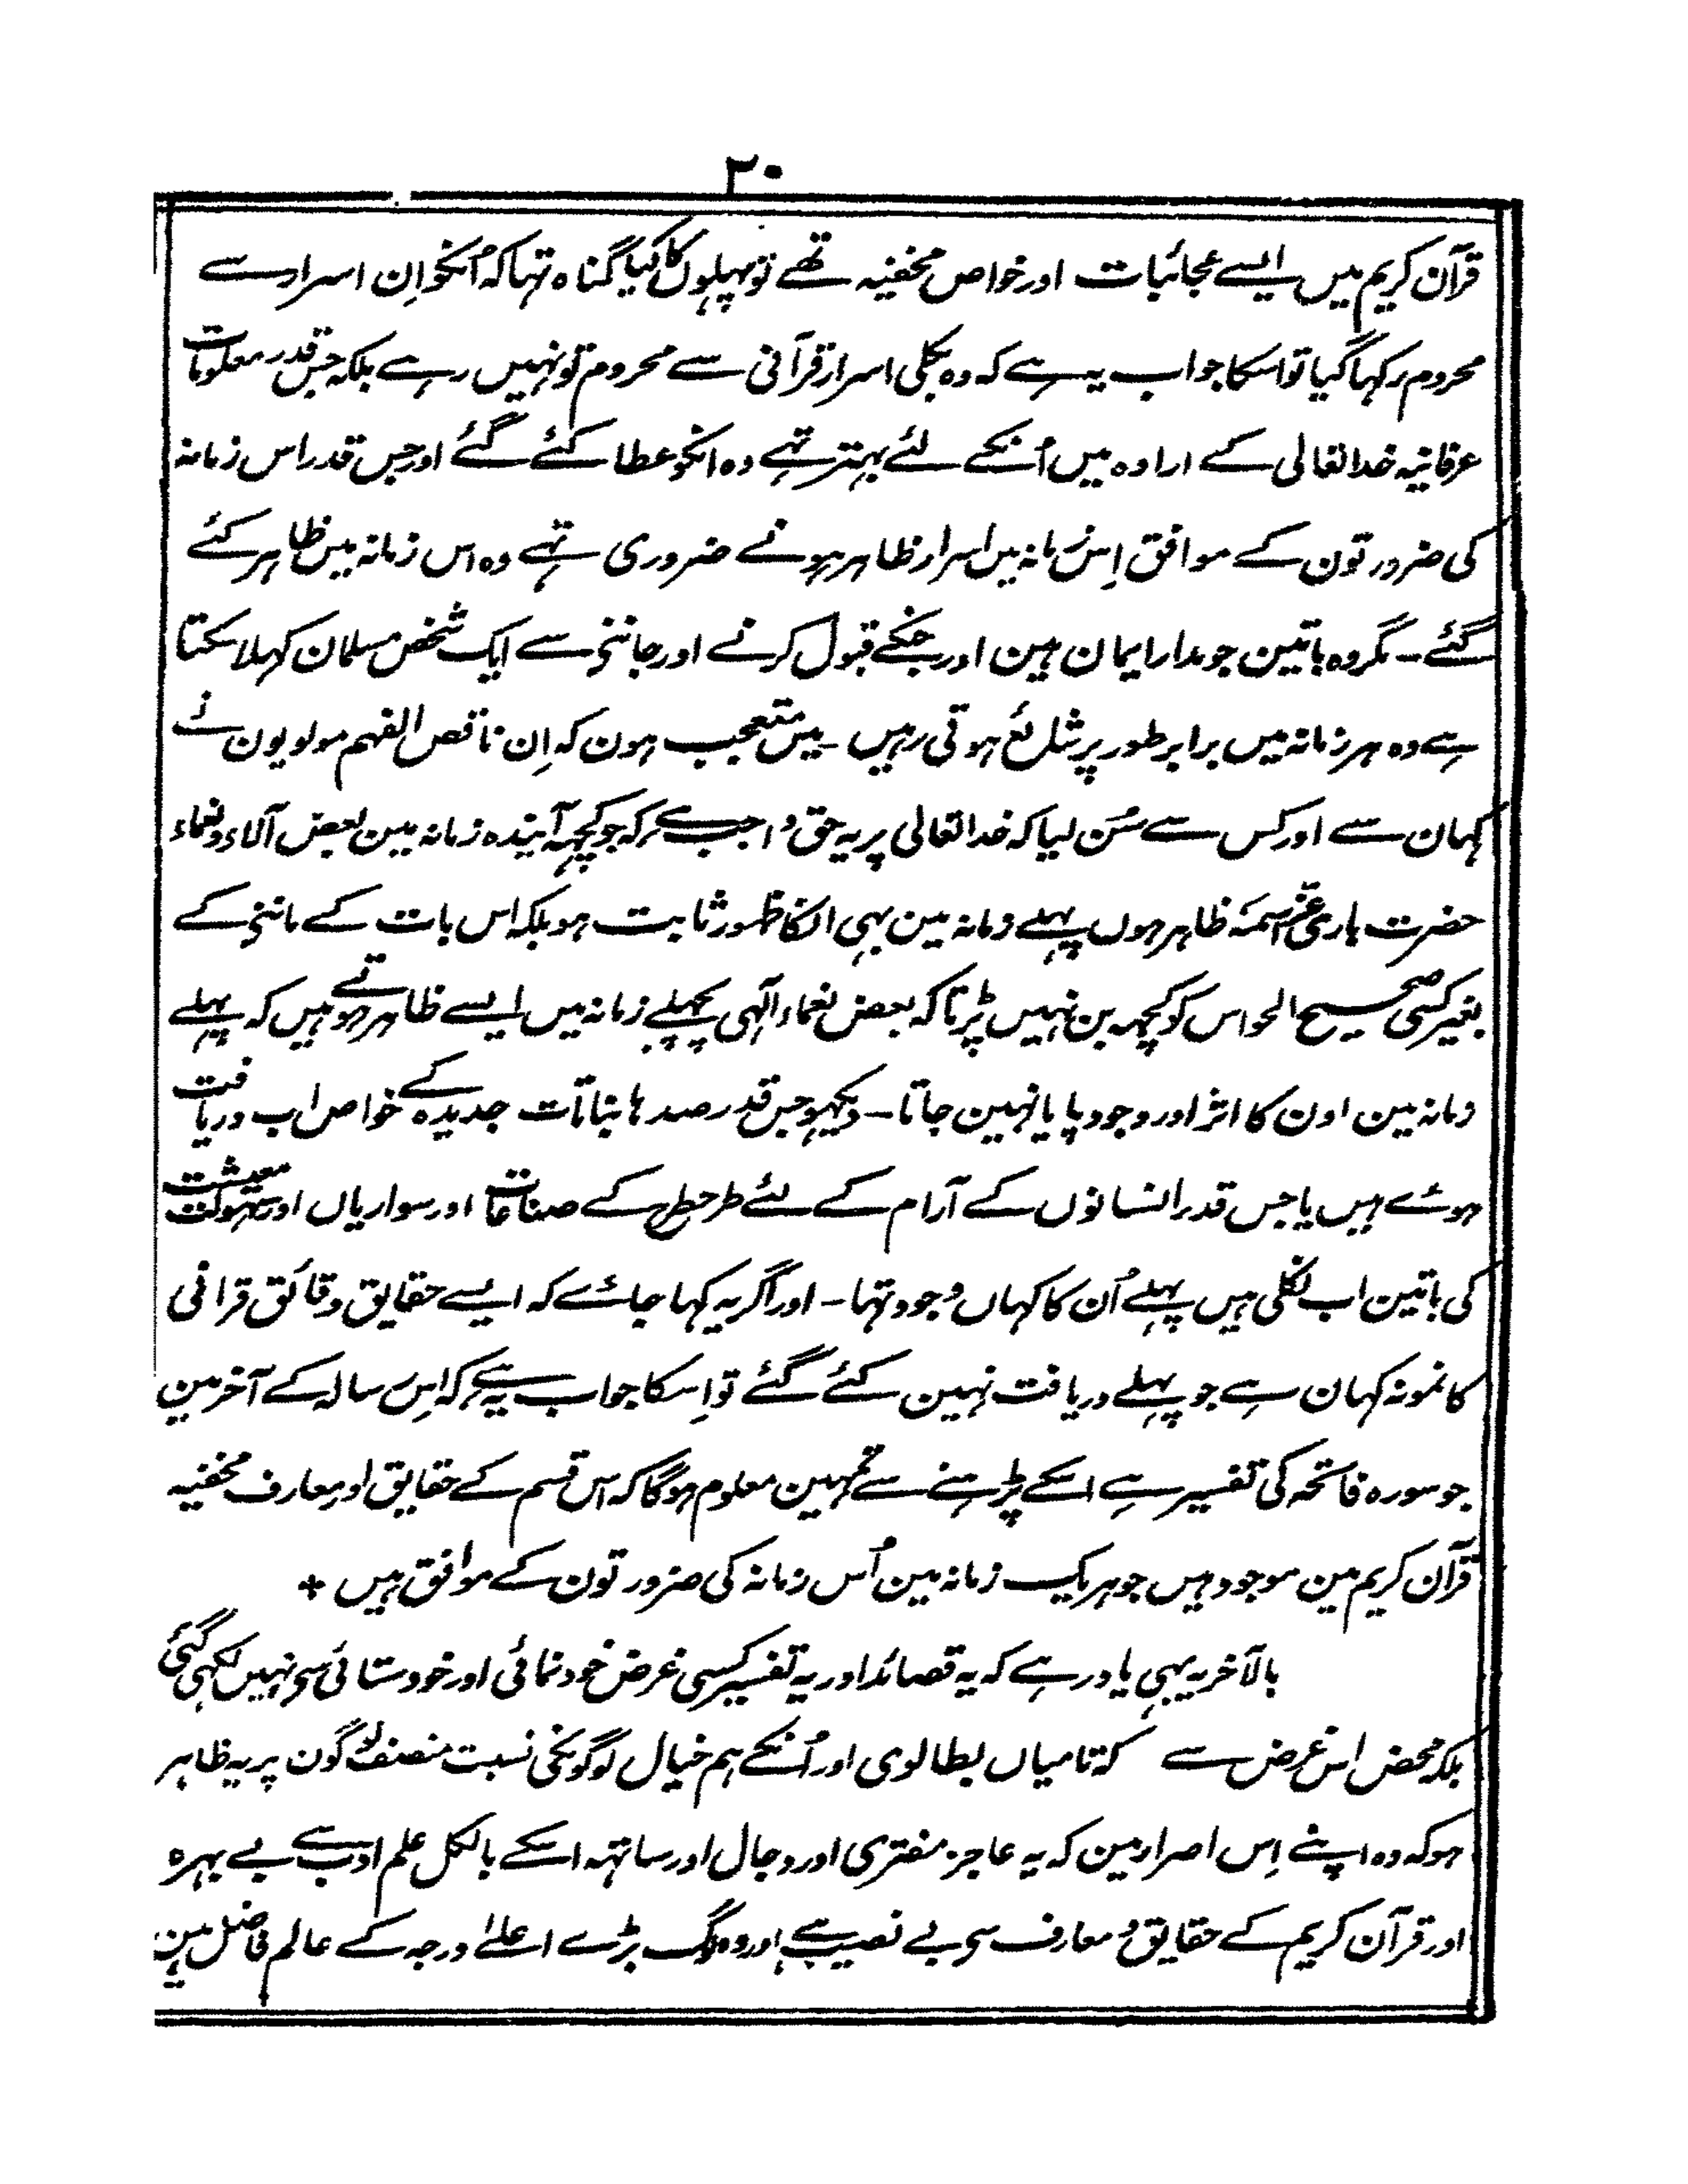 ۲۰
قرآن کریم میں ایسے عجائبات اور خواص مخفیہ تھے تو پہلوں کا کیا گناہ تہا کہ اُنکو اِن اسرار سے
محروم رکہا گیا تو اسکا جواب یہ ہے کہ وہ بکلی اسرار قرآنی سے محروم تو نہیں رہے بلکہ جس قدر معلومات
عرفانیہ خدا تعالی کے ارادہ میں اُنکے لئے بہتر تہے وہ انکو عطا کئے گئے اور جس قدر اس زمانہ
کی ضرورتون کے موافق اِس زمانہ میں اسرار ظاہر ہونے ضروری تہے وہ اس زمانہ میں ظاہر کئے
گئے ـ مگر وہ باتین جو مدار ایمان ہین اور جنکے قبول کرنے اور جاننے سے ایک شخص مسلمان کہلا سکتا
ہے وہ ہر زمانہ میں برابر طور پر شائع ہوتی رہیں ـ میں متعجب ہون کہ اِن ناقص الفہم مولویون نے
کہان سے اور کس سے سُن لیا کہ خدا تعالی پر یہ حق واجب ہے کہ جو کچہہ آیندہ زمانہ مین بعض آلاء و نعماء
حضرت باری عز اسمہ ظاہر ہوں پہلے زمانہ مین بہی انکا ظہور ثابت ہو بلکہ اس بات کے ماننے کے
بغیر کسی صحیح الحواس کو کچہہ بن نہیں پڑتا کہ بعض نعماء الٰہی پچہلے زمانہ میں ایسے ظاہر ہوتے ہیں کہ پہلے
زمانہ مین اون کا اثر اور وجود پایا نہین جاتا ـ دیکہو جس قدر صدہا نباتات جدیدہ کے خواص اب دریافت
ہوئے ہیں یا جس قدر انسانوں کے آرام کے لئے طرح طرح کے صناعات اور سواریاں اور سہولت معیشت
کی باتین اب نکلی ہیں پہلے اُن کا کہاں وجود تہا ـ اور اگر یہ کہا جائے کہ ایسے حقایق دقائق قرانی
کا نمونہ کہان ہے جو پہلے دریافت نہین کئے گئے تو اِسکا جواب یہ ہے کہ اِس رسالہ کے آخر مین
جو سورہ فاتحہ کی تفسیر ہے اسکے پڑہنے سے تمہین معلوم ہوگا کہ اس قسم کے حقایق اور معارف مخفیہ
قرآن کریم مین موجود ہیں جو ہر یک زمانہ مین اُس زمانہ کی ضرورتون کے موافق ہیں +
بالآخر یہ بہی یاد رہے کہ یہ قصائد اور یہ تفسیر کسی غرض خودنمائی اور خودستائی سے نہیں لکہی گئی
بلکہ محض اس غرض سے کہ تا میاں بطالوی اور اُنکے ہم خیال لوگونکی نسبت منصف لوگون پر یہ ظاہر
ہو کہ وہ اپنے اِس اصرار مین کہ یہ عاجز مفتری اور دجال اور ساتہہ اسکے بالکل علم ادب سے بے بہرہ
اور قرآن کریم کے حقایق و معارف سے بے نصیب ہے اور وہ لوگ بڑے اعلےٰ درجہ کے عالم فاضل ہین